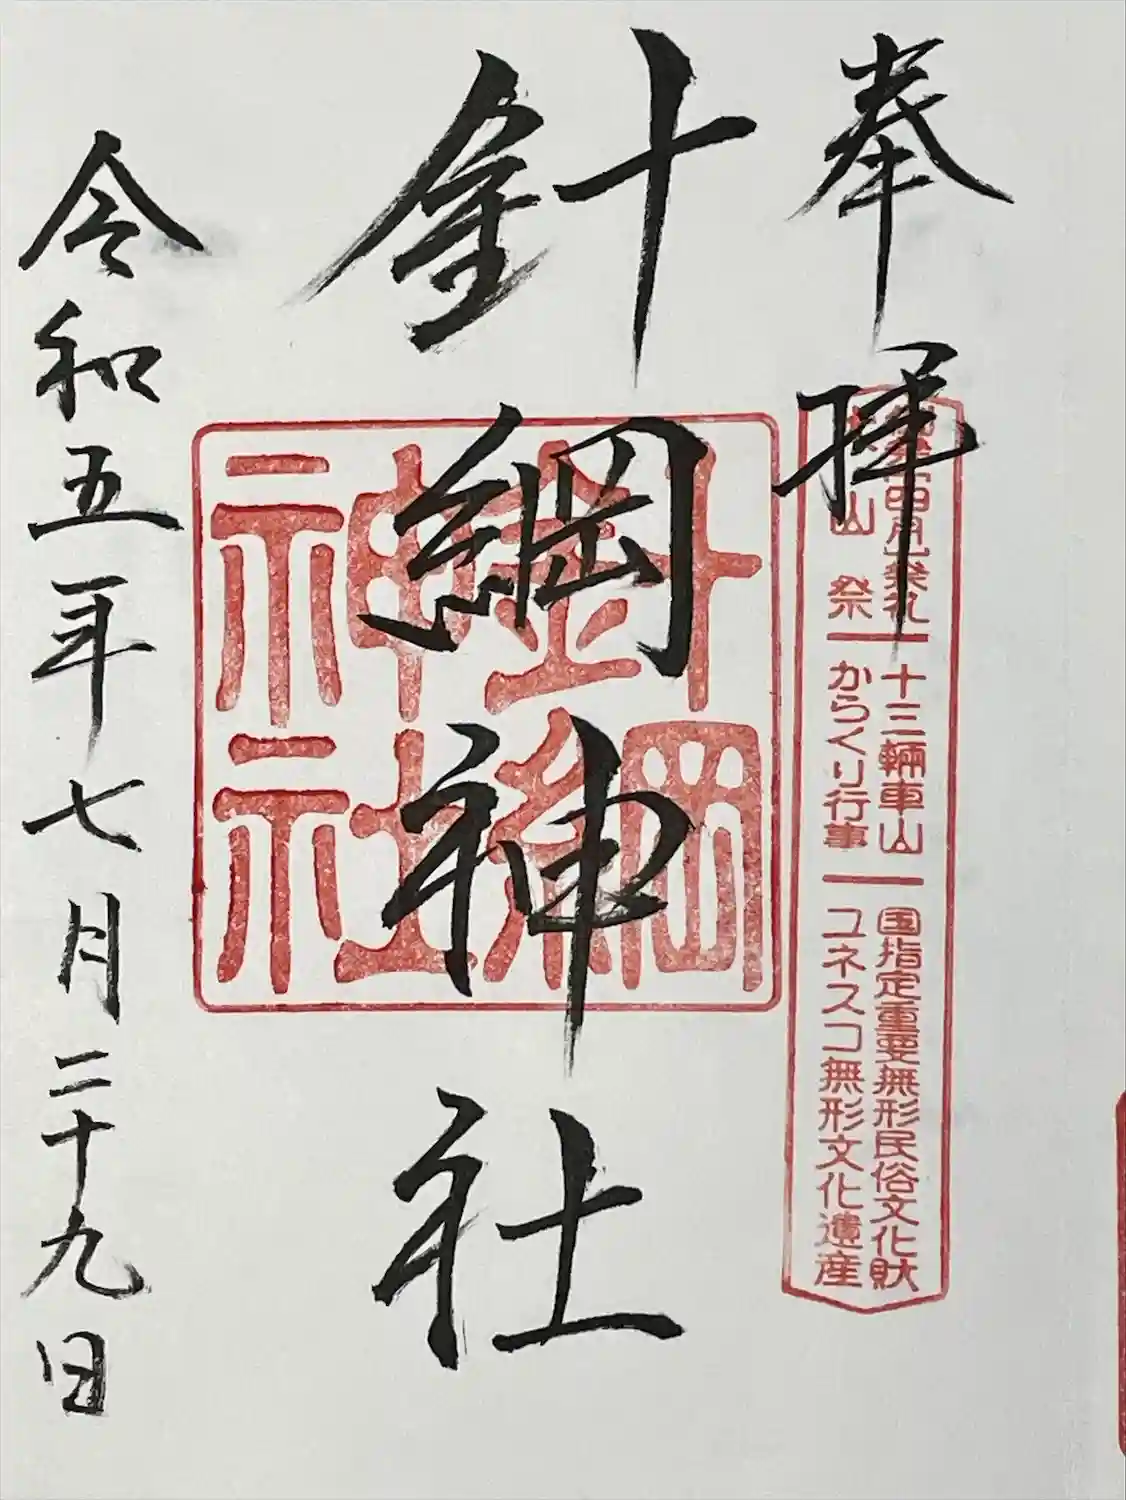 奉拝
十三輛車山
国指定重要無形民俗文化財
山祭
からくり行事
ユネスコ無形文化遺産
針綱神社
針綱神社
令和五年七月二十九日